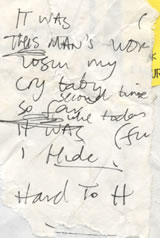 IT WAS (
THIS MAN'S WORK
losin my
cry baby
second time
so far
like today
IT WAS (fu
I Hide.
HARD TO H